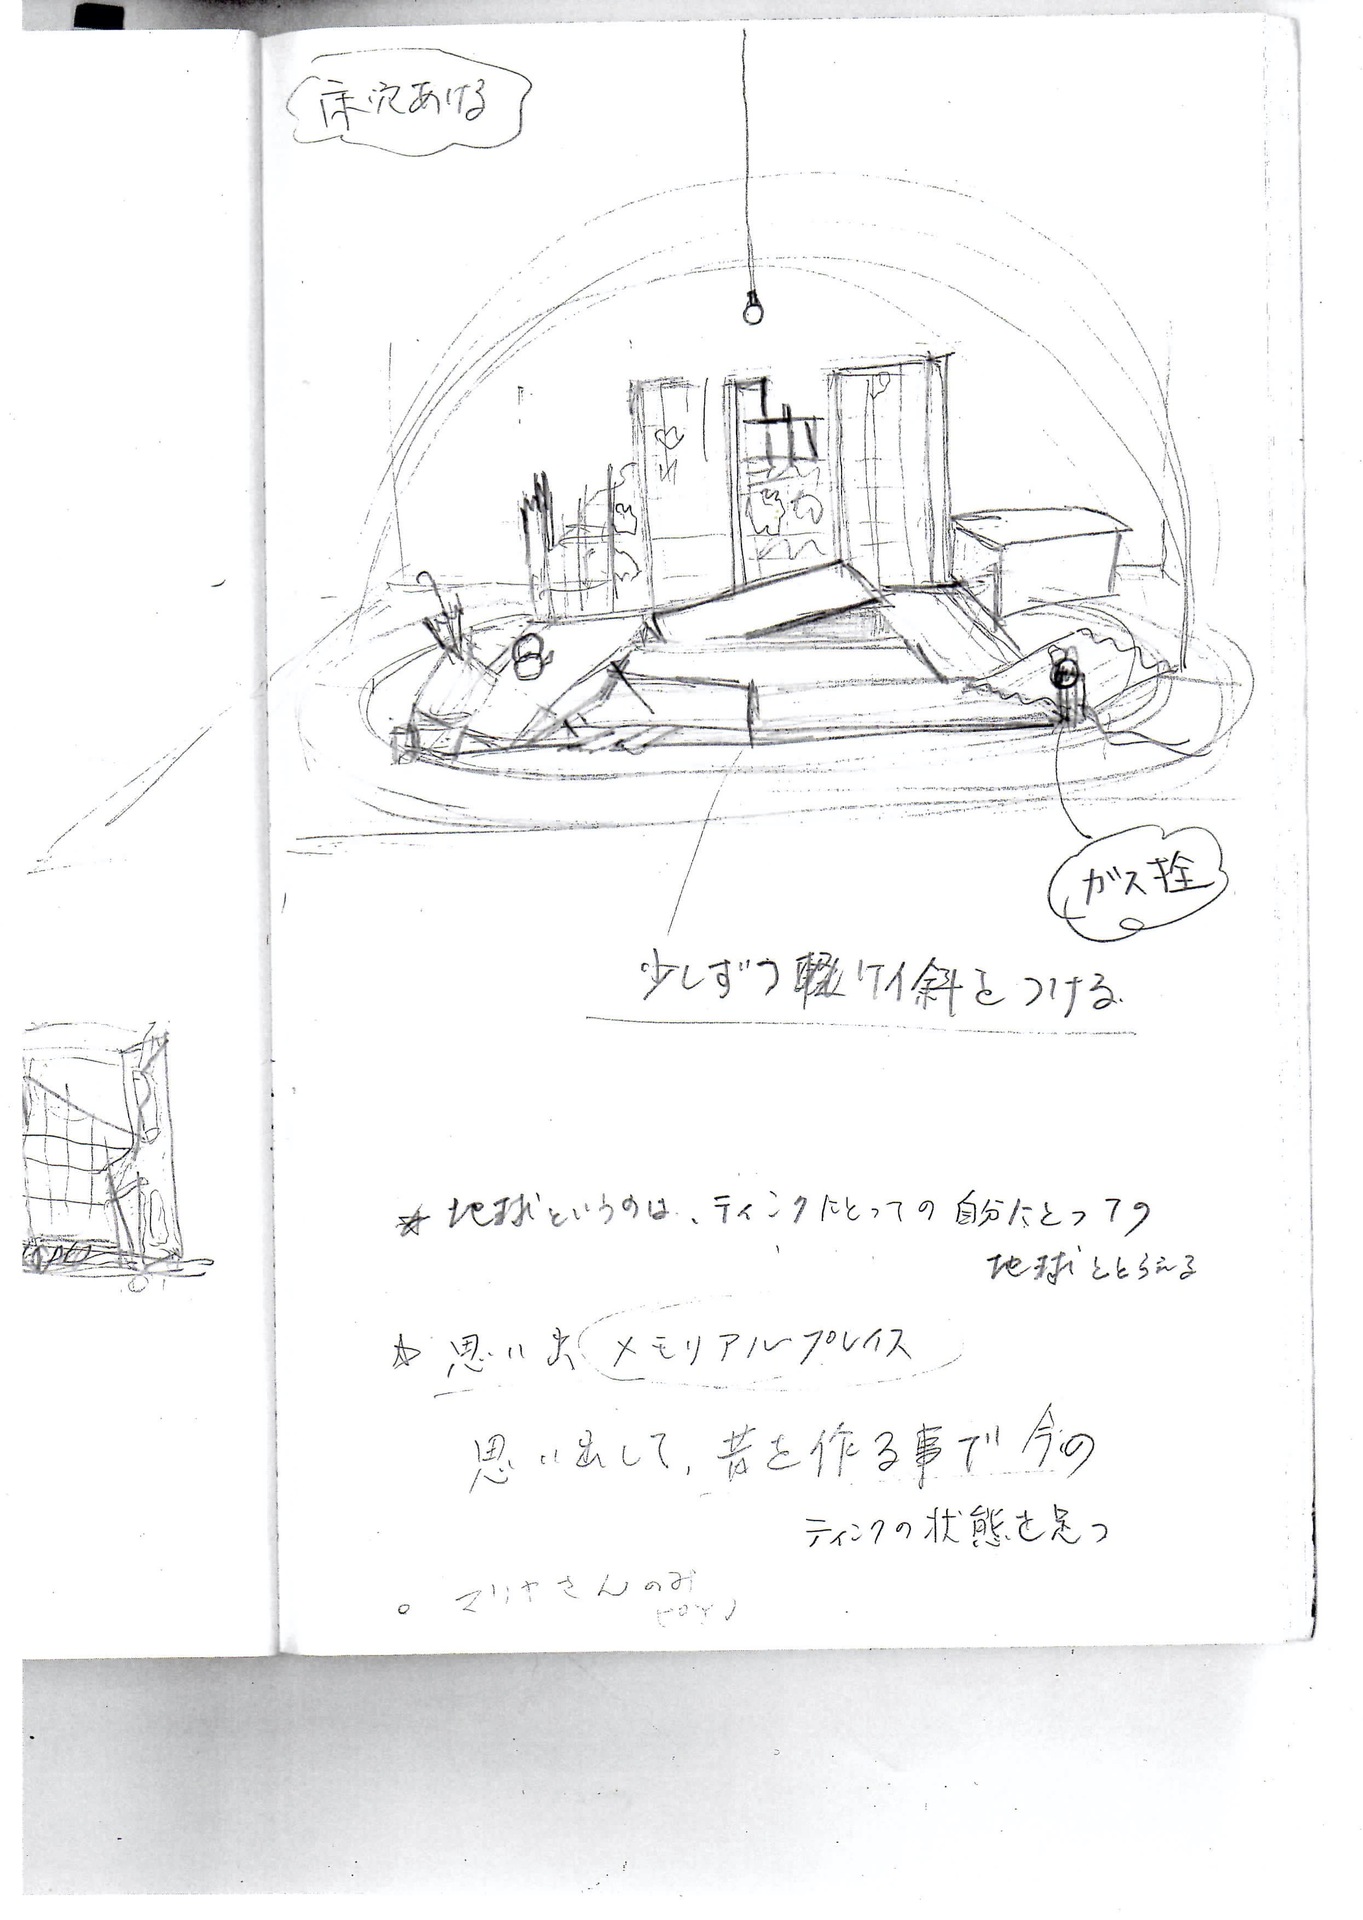 床穴あける
ガス栓
少しずつ軽くケイ斜をつける
☆地球というのは、ティンクにとっての自分にとっての
地球ととらえる
☆思い出 メモリアルプレイス
思い出して、昔を作る事で今の
ティンクの状態を足つ
。マリヤさんのお